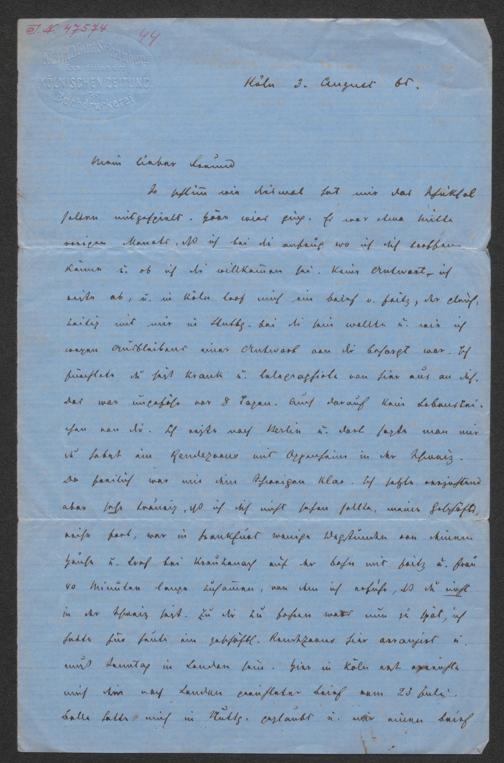 I. N. 47574 44
KÖLNISCHEN ZEITUNG
Köln 3. August 65.
Mein lieber Freund
So schlimm wie diesmal hat mir das Schicksal
selten mitgespielt. Höre wies ging. Es war etwa Mitte
vorigen Monats, daß ich bei dir anfrug wo ich dich treffen
könne u. ob ich dir willkommen sei. Keine Antwort, ich
reiste ab, u. in Köln traf mich ein Brief v. Fritz, der gleich-
zeitig mit mir in Stuttg. bei dir sein wollte u. wie ich
wegen Ausbleibens einer Antwort von dir besorgt war. Ich
fürchtete du seist krank u. telegraphirte von hier aus an dich.
Das war ungefähr vor 8 Tagen. Auch darauf kein Lebenszei-
chen von dir. Ich reiste nach Berlin u. dort sagte man mir
du habest ein Rendezvous mit Oppenheim in der Schweiz.
Da freilich war mir dein Schweigen klar. Ich setzte
aber sehr traurig, daß ich dich nicht sehen sollte, meine Geschäfts-
reise fort, war in Frankfurt wenige Wegstunden von deinem
Hause u. traf bei Kreuznach auf der Bahn mit Fritz u. Frau
40 Minuten lange zusammen, von dem ich erfuhr, daß du nicht
in der Schweiz seist. Zu dir zu fahren war nun zu spät, ich
hatte für heute ein geschäftl. Rendezvous hier arrangirt u.
muß Sonntag in London sein. Hier in Köln erst erreichte
mich dein nach London gerichteter Brief vom 23 Juli.
hatte mich in Stuttg. geglaubt u. mir einen Brief